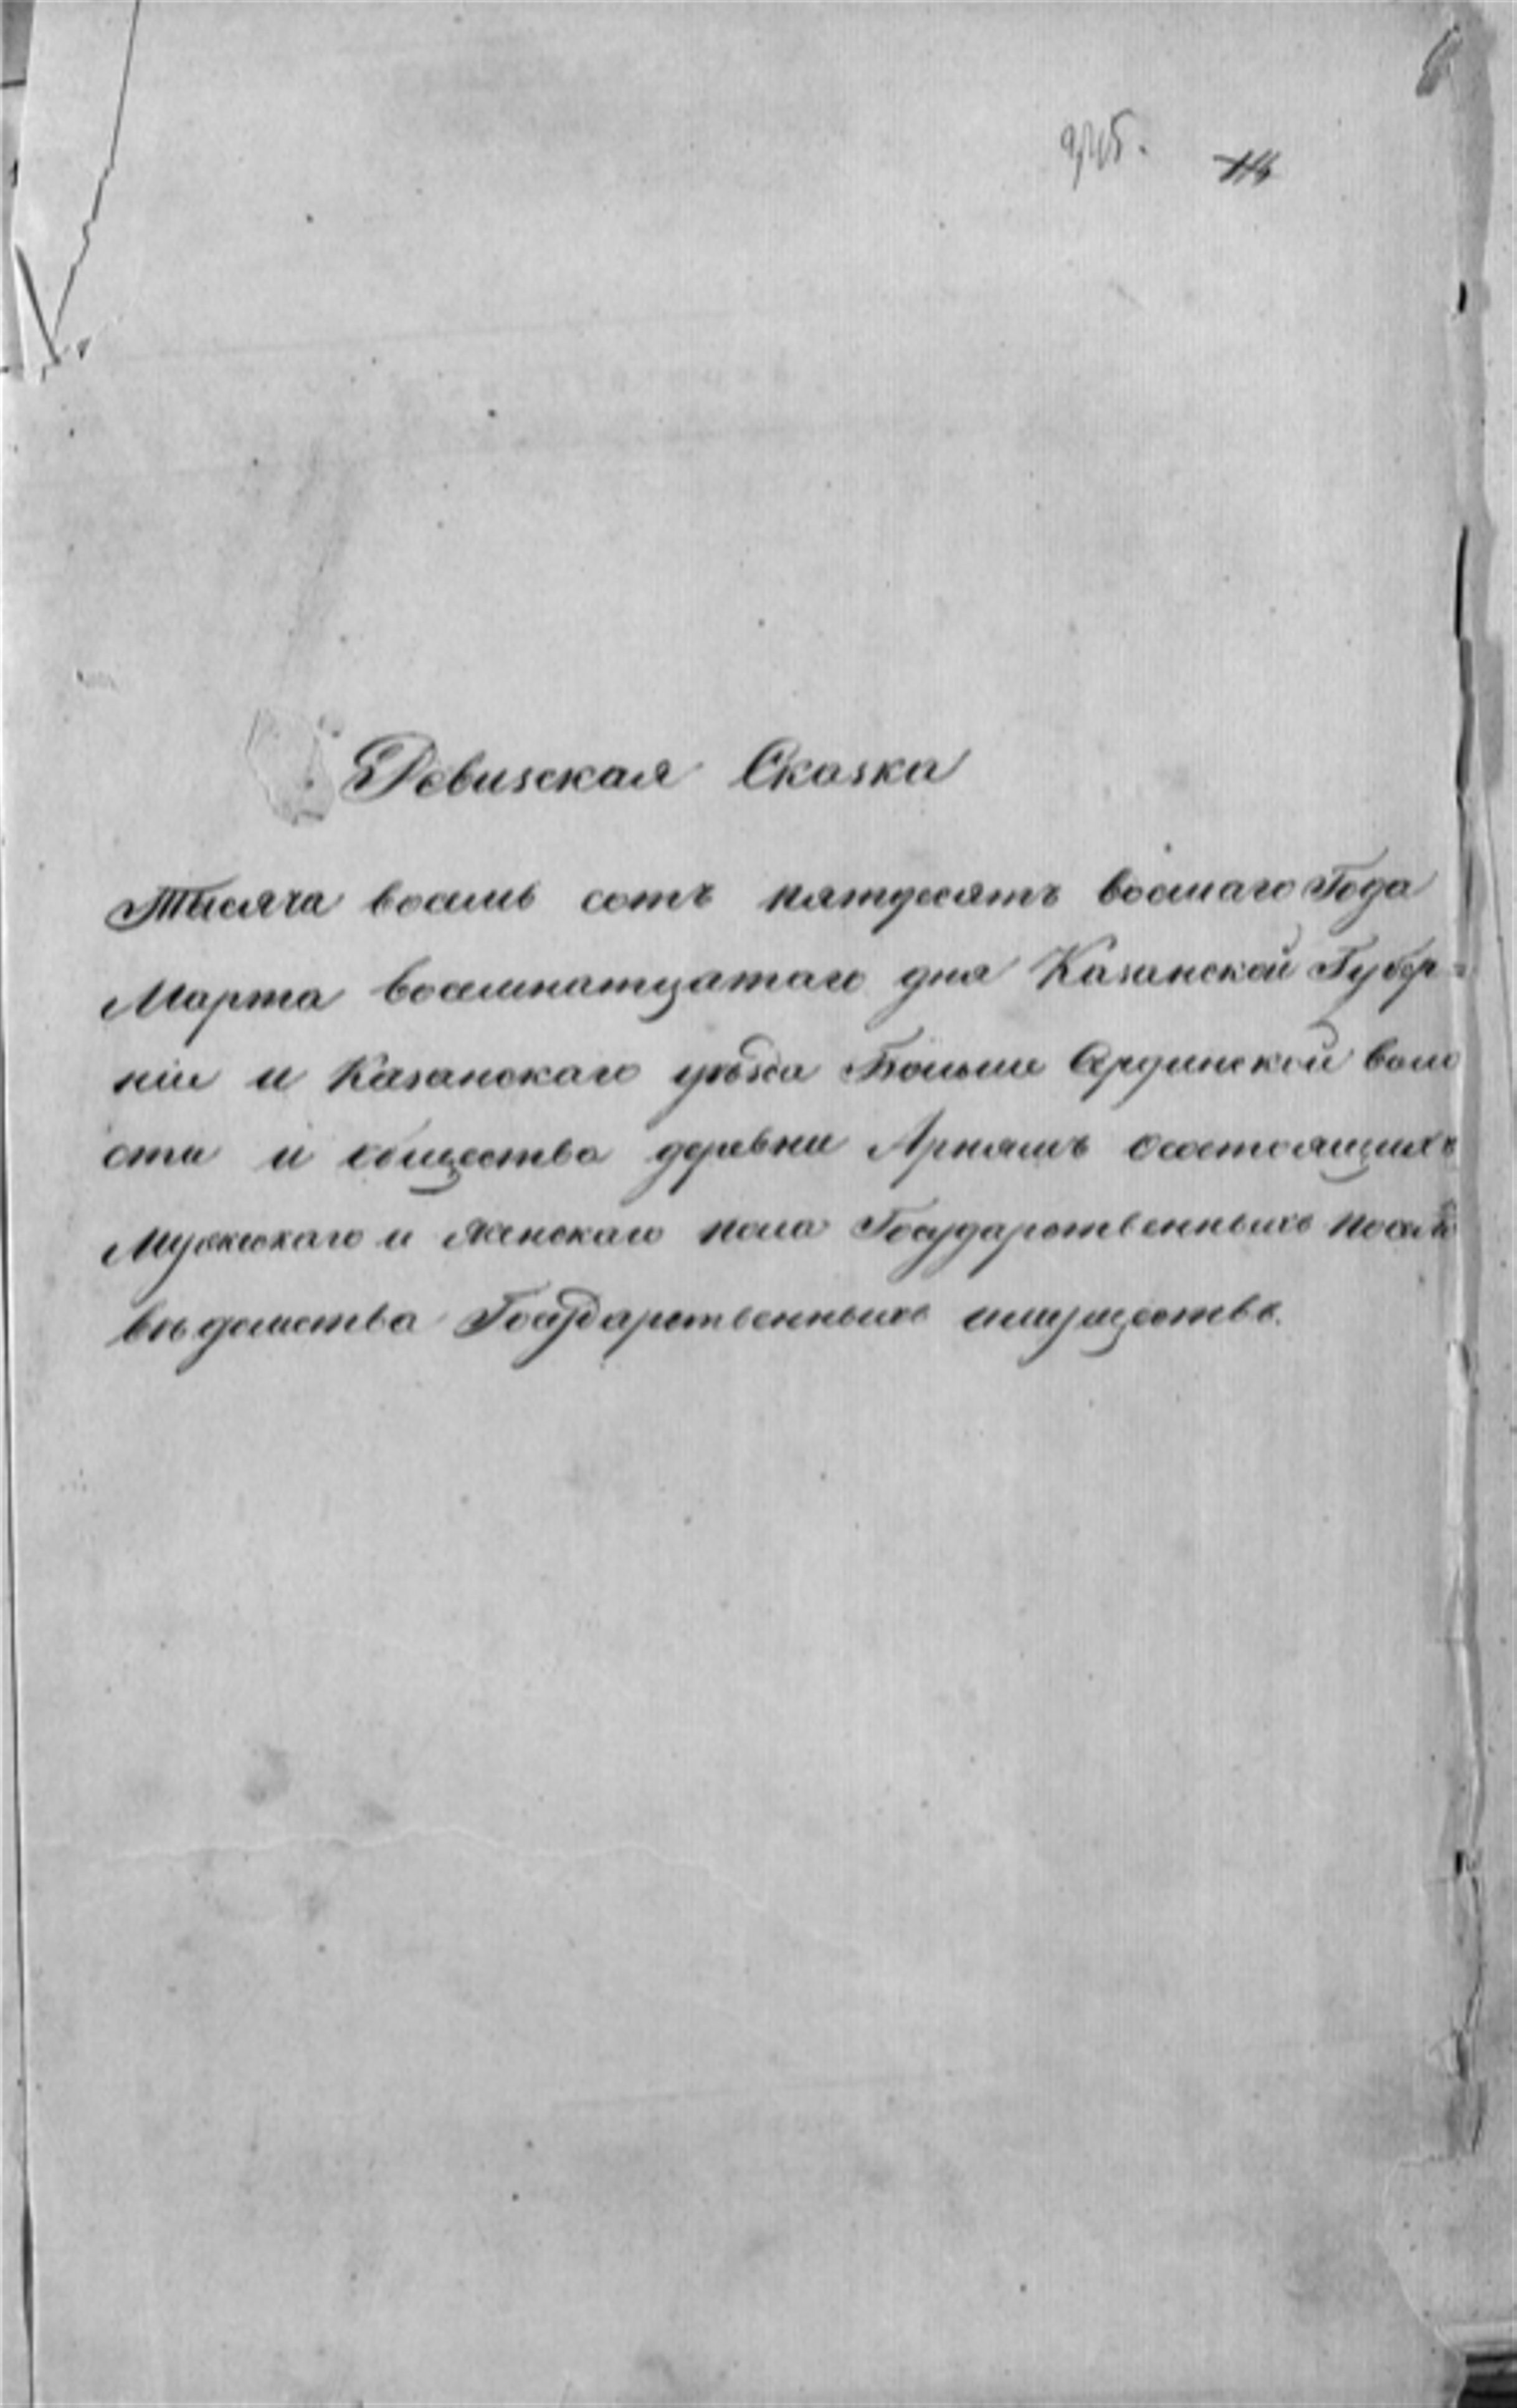 Ревизская Сказка
Тысяча восемь сотъ пятдесятъ восмаго Года
Марта восемнатцатаго дня Казанской Губер=
ніи и Казанскаго уѣзда Больше Ординской воло
сти и общества деревни Арняшъ состоящихъ
Мужскаго и Женскаго пола Государственныхъ посел
вѣдомства Государственныхъ имуществъ.